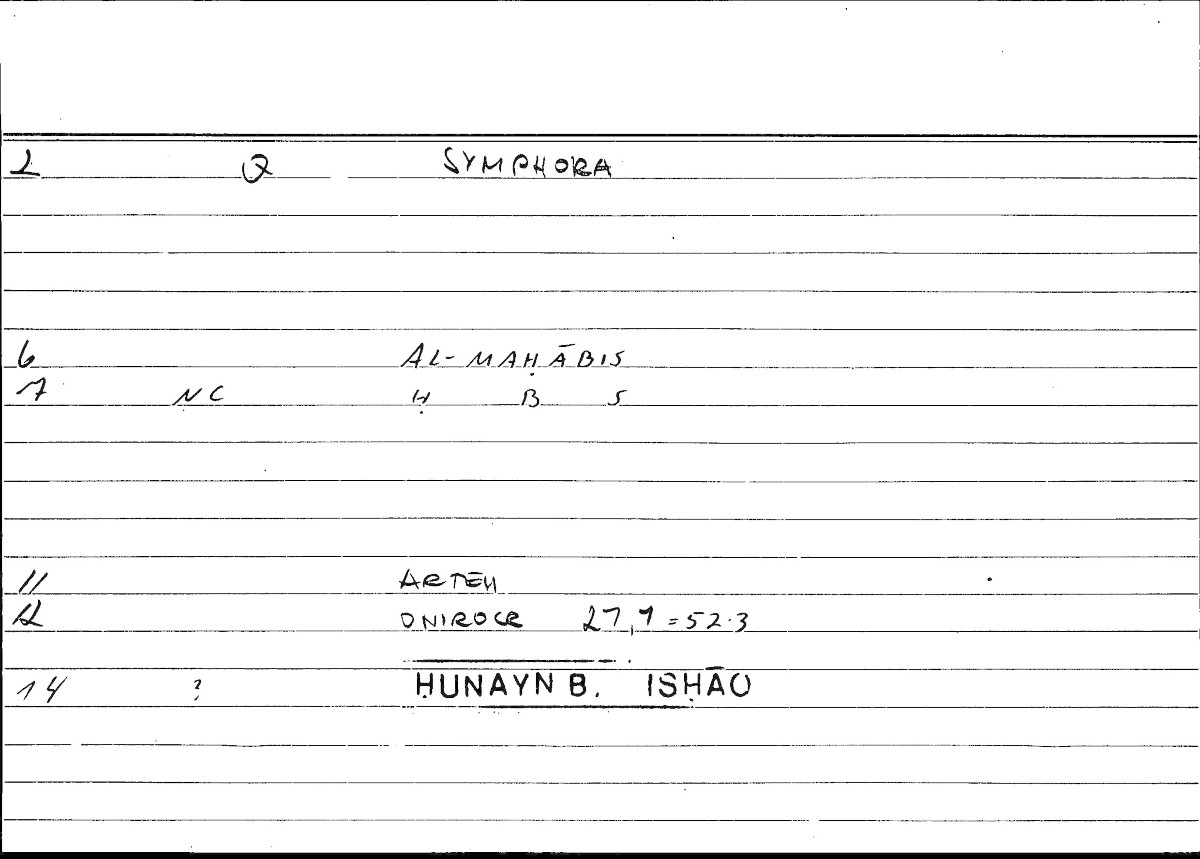 2 Q SYMPHORA
6 AL-MAḤĀBIS
7 NC Ḥ B S
11 ARTEM
12 ONIROCR 27,1=52.3
14 ? ḤUNAYN B. ISḤĀQ